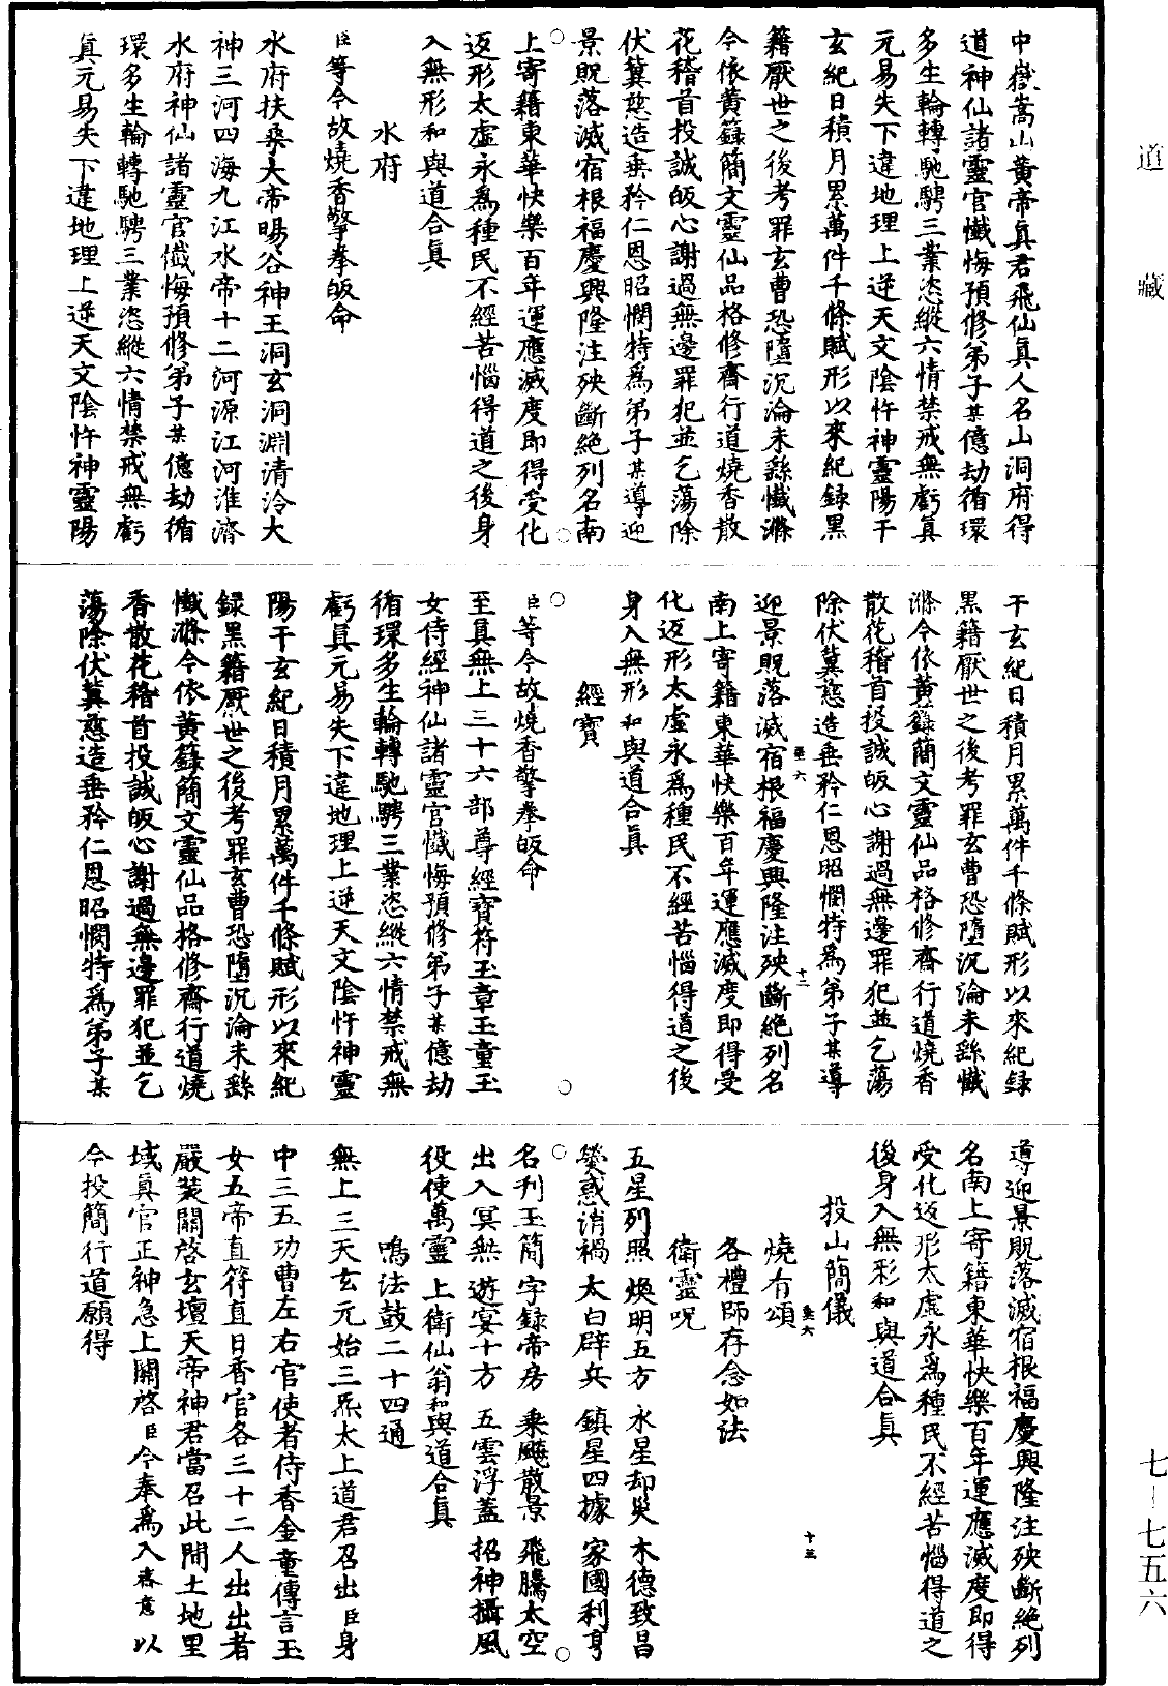 道藏
中嶽嵩山黃帝真君飛仙真人名山洞府得
道神仙諸靈官懺悔預修弟子某億劫循環
多生輪轉馳騁三業恣縱六情禁戒無虧真
元易失下違地理上逆天文陰忤神靈陽干
玄紀日積月累萬件千條賦形以來紀錄黑
籍厭世之後考罪玄曹恐墮沉淪未繇懺滌
今依黃籙簡文靈仙品格修齋行道燒香散
花稽首投誠皈心謝過無邊罪犯並乞蕩除
伏冀慈造垂矜仁恩昭憫特為弟子某導迎
景貺落滅宿根福慶興隆注殃斷絕列名南
上寄籍東華快樂百年運應滅度即得受化
返形太虛永為種民不經苦惱得道之後身
入無形和與道合真
水府
臣等今故燒香擎拳皈命
水府扶桑大帝暘谷神王洞玄洞淵清泠大
神三河四海九江水帝十二河源江河淮濟
水府神仙諸靈官懺悔預修弟子某億劫循
環多生輪轉馳騁三業恣縱六情禁戒無虧
真元易失下違地理上逆天文陰忤神靈陽
干玄紀日積月累萬件千條賦形以來紀錄
黑籍厭世之後考罪玄曹恐墮沉淪未繇懺
滌今依黃籙簡文靈仙品格修齋行道燒香
散花稽首投誠皈心謝過無邊罪犯並乞蕩
除伏冀慈造垂矜仁恩昭憫特為弟子某導
十二
迎景貺落滅宿根福慶興隆注殃斷絕列名
南上寄籍東華快樂百年運應滅度即得受
化返形太虛永為種民不經苦惱得道之後
身入無形和與道合真
經寶
臣等今故燒香擎拳皈命
至真無上三十六部尊經寶符玉章玉童玉
女侍經神仙諸靈官懺悔預修弟子某億劫
循環多生輪轉馳騁三業恣縱六情禁戒無
虧真元易失下違地理上逆天文陰忤神靈
陽干玄紀日積月累萬件千條賦形以來紀
錄黑籍厭世之後考罪玄曹恐墮沉淪未繇
懺滌今依黃籙簡文靈仙品格修齋行道燒
香散花稽首投誠皈心謝過無邊罪犯並乞
蕩除伏冀慈造垂矜仁恩昭憫特為弟子某
導迎景貺落滅宿根福慶興隆注殃斷絕列
名南上寄籍東華快樂百年運應滅度即得
受化返形太虛永為種民不經苦惱得道之
後身入無形和與道合真
投山簡儀
十三
燒有頌
各禮師存念如法
衛靈呪
五星列照 煥明五方 水星却災 木德致昌
熒惑消禍 太白辟兵 鎮星四據 家國利亨
名刊玉簡 字錄帝房 乘飈散景 飛騰太空
出入冥無 遊宴十方 五雲浮蓋 招神攝風
役使萬靈 上衛仙翁 和與道合真
鳴法鼓二十四通
無上三天玄元始三炁太上道君召出臣身
中三五功曹左右官使者侍香金童傳言玉
女五帝直符直日香官各三十二人出出者
嚴裝關啓玄壇天帝神君當召此間土地里
域真官正神急上關啓臣今奉為入齋意以
今投簡行道願得
七—七五六